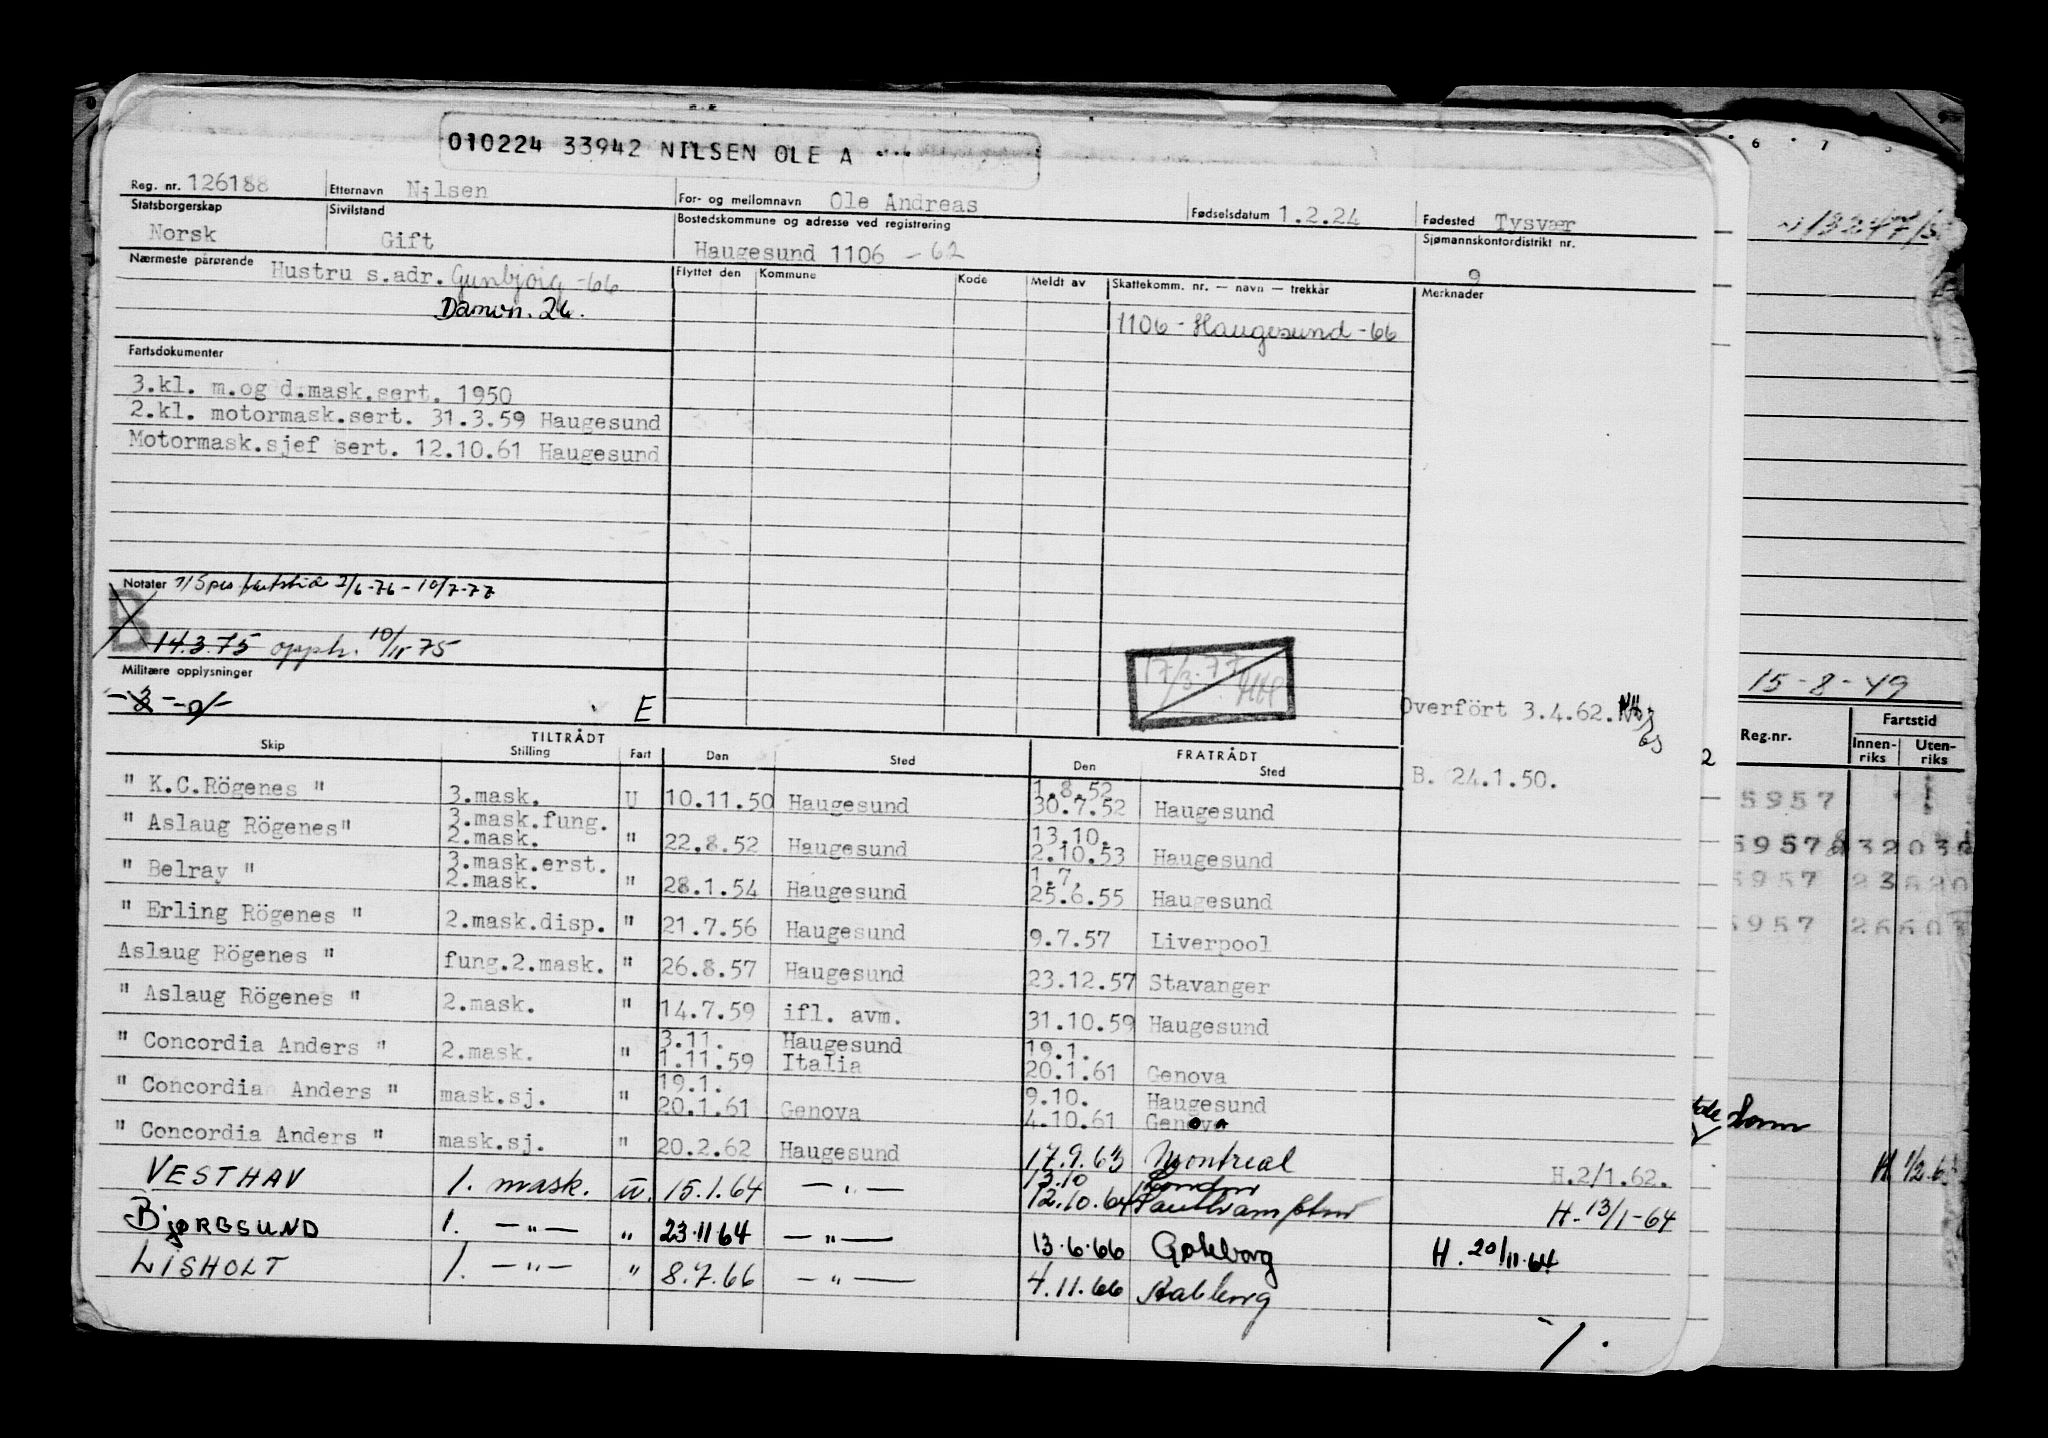 010224 33942 NILSEN OLE A
Reg. nr. 126188 Etternavn Nilsen For- og mellomnavn Ole Andreas Fødselsdatum 1.2.24 Fødested Tysvær
Statsborgerskap Norsk Sivilstand Gift Bostedskommune og adresse ved registrering Haugesund 1106 -62 Sjømannskontordistrikt nr. 9
Nærmeste pårørende Hustru s.adr. Gunbjørg -66 Flyttet den Kommune Kode Meldt av Skattekomm. nr. — navn — trekkår Merknader
Damvn. 26. 1106 - Haugesund -66
Fartsdokumenter
3.kl. m.og d.mask.sert. 1950
2.kl. motormask.sert. 31.3.59 Haugesund
Motormask.sjef sert. 12.10.61 Haugesund
Notater fartstid 2/6-76 - 10/7-77
B 14.3.75 opph. 10/11 75
Militære opplysninger
E
17/3.77
Overført 3.4.62.
15-8-49
TILTRÅDT FRATRÅDT
Skip Stilling Fart Den Sted Den Sted
B. 24.1.50.
Reg.nr. Fartstid
Innen-riks Uten-riks
" K.C.Rögenes " 3.mask. U 10.11.50 Haugesund 1.8.52 30.7.52 Haugesund
" Aslaug Rögenes" 3.mask.fung. 2.mask. " 22.8.52 Haugesund 13.10. 2.10.53 Haugesund
" Belray " 3.mask.erst. 2.mask. " 28.1.54 Haugesund 1.7. 25.6.55 Haugesund
" Erling Rögenes " 2.mask.disp. " 21.7.56 Haugesund 9.7.57 Liverpool
Aslaug Rögenes " fung.2.mask. " 26.8.57 Haugesund 23.12.57 Stavanger
" Aslaug Rögenes " 2.mask. " 14.7.59 ifl. avm. 31.10.59 Haugesund
" Concordia Anders " 2.mask. " 3.11. 1.11.59 Haugesund Italia 19.1. 20.1.61 Genova
" Concordia Anders " mask.sj. " 19.1. 20.1.61 Genova 9.10. 4.10.61 Haugesund Genova
" Concordia Anders " mask.sj. " 20.2.62 Haugesund 17.9.63 Montreal H.2/1.62.
VESTHAV 1. mask. u. 15.1.64 — " — 13.10 12.10.64 London Southampton H. 13/1-64
BJØRGSUND 1. — " — " 23.11.64 — " — 13.6.66 Gøteborg H. 20/11.64
LISHOLT 1. — " — " 8.7.66 — " — 4.11.66 Aalborg
5957
5957
5957
5957